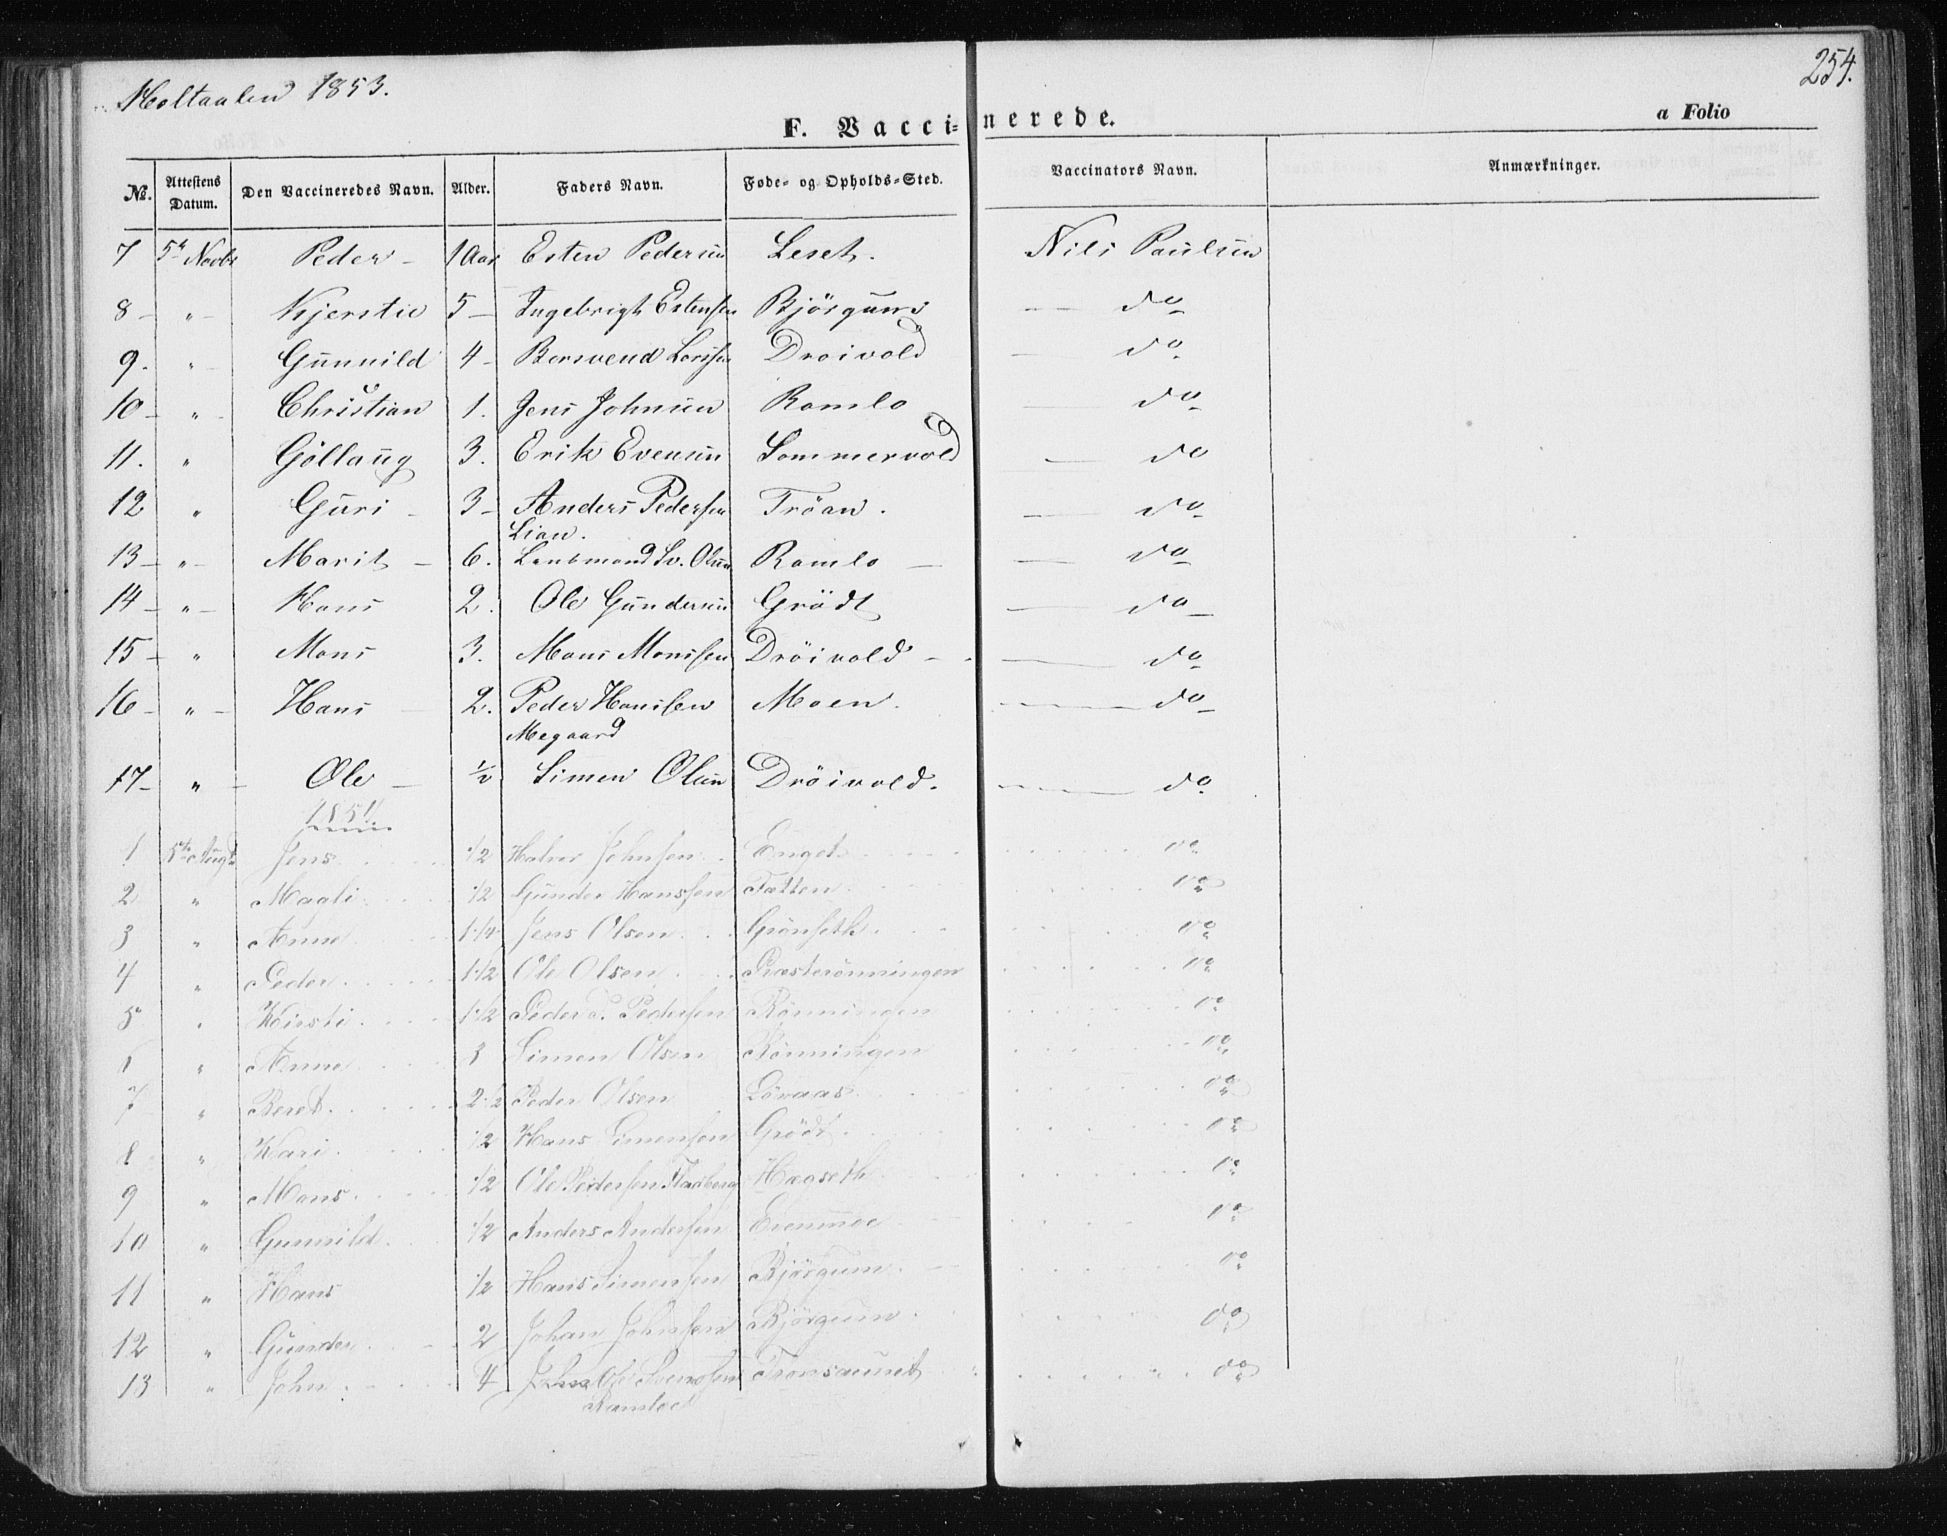 Holtaalen 1853.
254.
F. Vaccinerede.
a Folio
No. Attestens Datum. Den Vaccineredes Navn. Alder. Faders Navn. Føde- og Opholds-Sted. Vaccinators Navn. Anmærkninger.
7 5te Novbr Peder - 1 Aar Esten Pedersen Leset. Nils Paulsen
8 - " - Kjerstie 5 - Ingebrigt Estensen Bjørgum do
9. " Gunnild 4 - Drøivold do
10 - " - Christian 1. Jens Johnsen Ramlo do
11. " Göllaug 3. Erik Evensen Sommervold do
12 " Guri - 3 - Anders Pedersen Tröan. do
Lian.
13 - " - Marit - 6. Olsen Ramlo - do
14 - " - Hans 2. Ole Gundersen Grödt do
15 - " Mons 3. Mons Monssen Dröivold - do
16 - " - Hans 2. Peder Hanssen Moen. do
Megaard
17 - " - Ole - 1/2 Simen Olsen Dröivold. do
1854
1 5te Augt Jens 1/2 Halvor Johnsen Enget do
2 " Magli 1/2 Gunder Hanssen Tatten do
3 " Anne 1 1/4 Jens Olsen Grönseth do
4 " Peder 1 1/2 Ole Olsen Præsterönningen do
5 " Kirsti 1 1/2 Peder P. Pedersen Rönningen do
6 " Anne 3 Simen Olsen Rönningen do
7 " Beret 2 1/2 Peder Olsen Lövaas do
8 " Kari 1/2 Hans Simensen Grödt do
9 " Mons 1/2 Ole Pedersen Fladberg Hagseth do
10 " Gunnild 1/2 Anders Andersen Evenmoe do
11 " Hans 1/2 Hans Simensen Bjørgum do
12 " Gunder 2 Johan Johnsen Bjørgum do
13 " John 4 Ole Svendsen Trönsaunet do
Ramloe